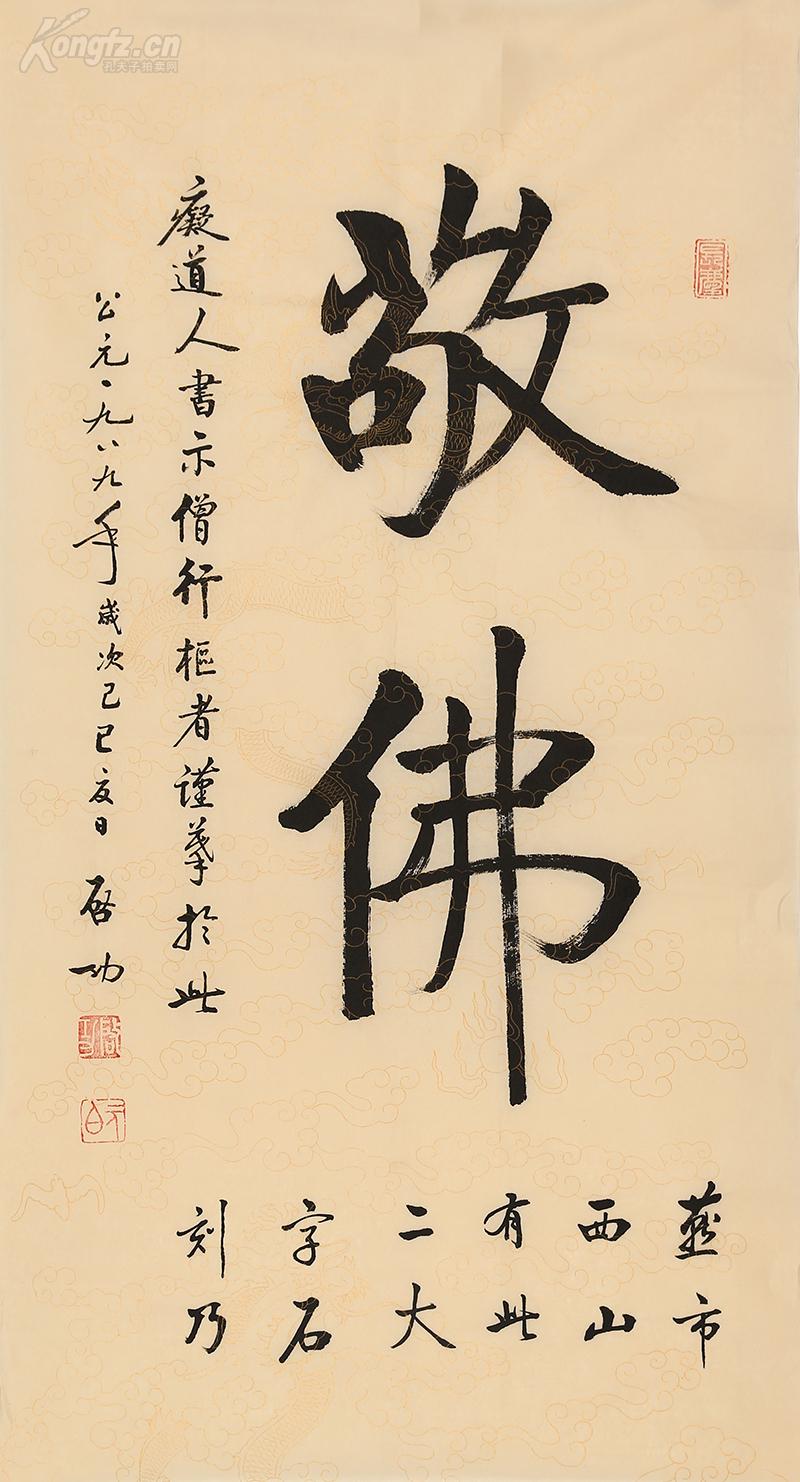 Kongfz.cn
孔夫子拍卖网
敬佛
燕市
西山
有此
二大
字石
刻乃
癡道人書示僧行樞者謹摹於此
公元一九八九年歲次己巳夏日 启功
啟功
元白